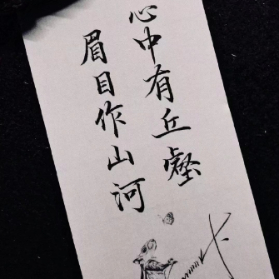 心中有丘壑
眉目作山河